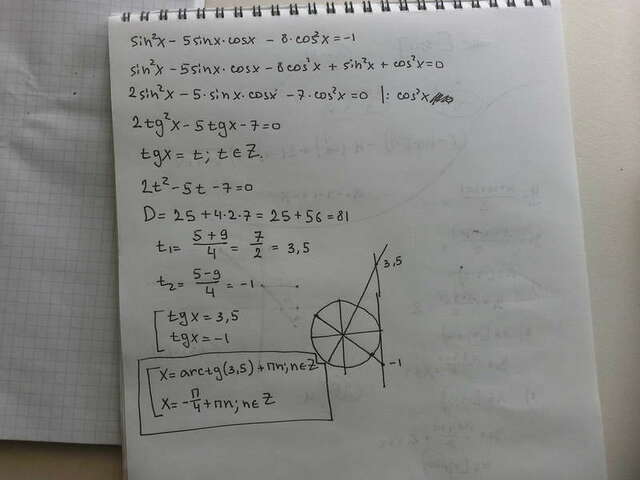 sin²x - 5sinx·cosx - 8·cos²x = -1
sin²x - 5sinx·cosx - 8cos²x + sin²x + cos²x = 0
2sin²x - 5·sinx·cosx - 7·cos²x = 0 |: cos²x
2tg²x - 5tgx - 7 = 0
tgx = t; t ∈ Z.
2t² - 5t - 7 = 0
D = 25 + 4·2·7 = 25 + 56 = 81
t₁ = (5+9)/4 = 7/2 = 3,5
t₂ = (5-9)/4 = -1
[ tgx = 3,5
tgx = -1
3,5
-1
[ x = arctg(3,5) + πn; n ∈ Z
x = -π/4 + πn; n ∈ Z